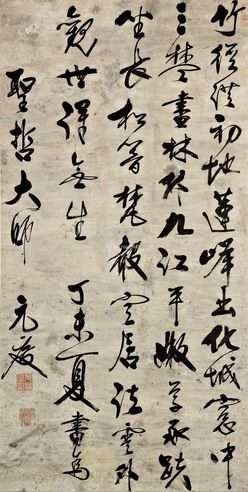 竹徑從初地蓮峰出化城窗中
三楚盡林外九江平嫩草承趺
坐長松響梵聲空居法雲外
觀世得無生 丁未夏書為
聖哲大師 元